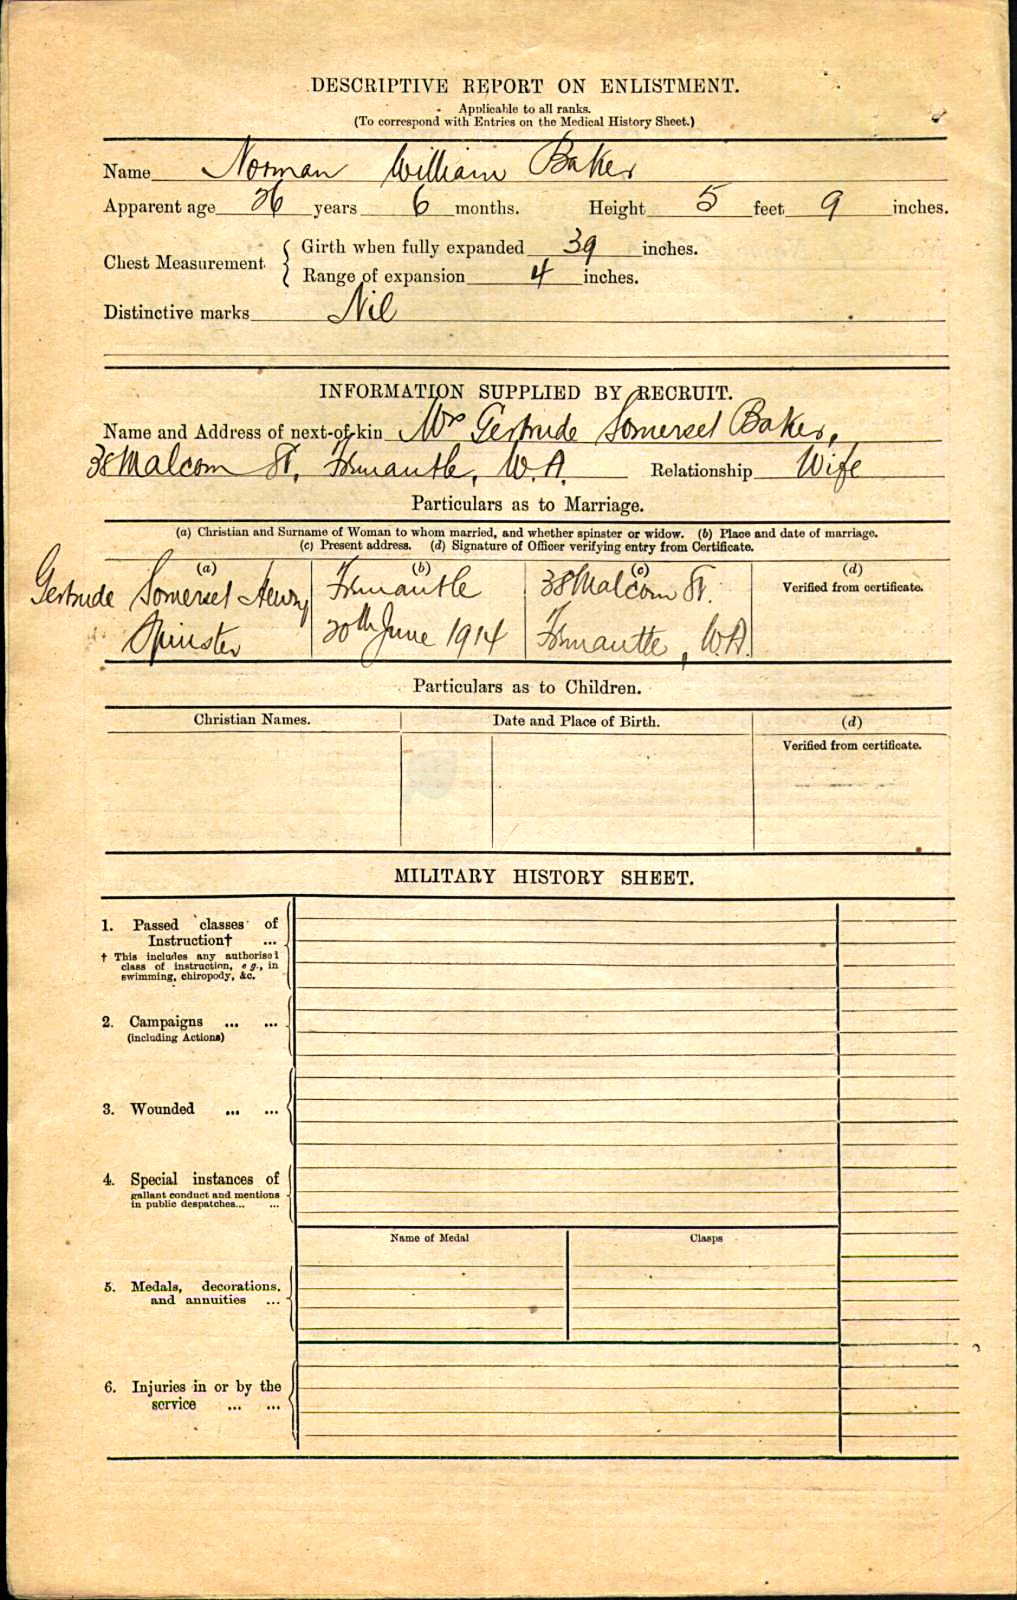 DESCRIPTIVE REPORT ON ENLISTMENT.
Applicable to all ranks.
(To correspond with Entries on the Medical History Sheet.)
Name Norman William Baker
Apparent age 26 years 6 months. Height 5 feet 9 inches.
Chest Measurement { Girth when fully expanded 39 inches.
Range of expansion 4 inches.
Distinctive marks Nil
INFORMATION SUPPLIED BY RECRUIT.
Name and Address of next-of-kin Mrs Gertrude Somerset Baker,
38 Malcom St, Fremantle, W.A. Relationship Wife
Particulars as to Marriage.
(a) Christian and Surname of Woman to whom married, and whether spinster or widow. (b) Place and date of marriage.
(c) Present address. (d) Signature of Officer verifying entry from Certificate.
(a) (b) (c) (d)
Gertrude Somerset Henry Fremantle 38 Malcom St. Verified from certificate.
Spinster 20th June 1914 Fremantle, W.A.
Particulars as to Children.
Christian Names. Date and Place of Birth. (d)
Verified from certificate.
MILITARY HISTORY SHEET.
1. Passed classes of
Instruction† ...
† This includes any authorised
class of instruction, e.g., in
swimming, chiropody, &c.
2. Campaigns ... ...
(including Actions)
3. Wounded ... ...
4. Special instances of
gallant conduct and mentions
in public despatches... ...
Name of Medal Clasps
5. Medals, decorations,
and annuities ...
6. Injuries in or by the
service ... ...